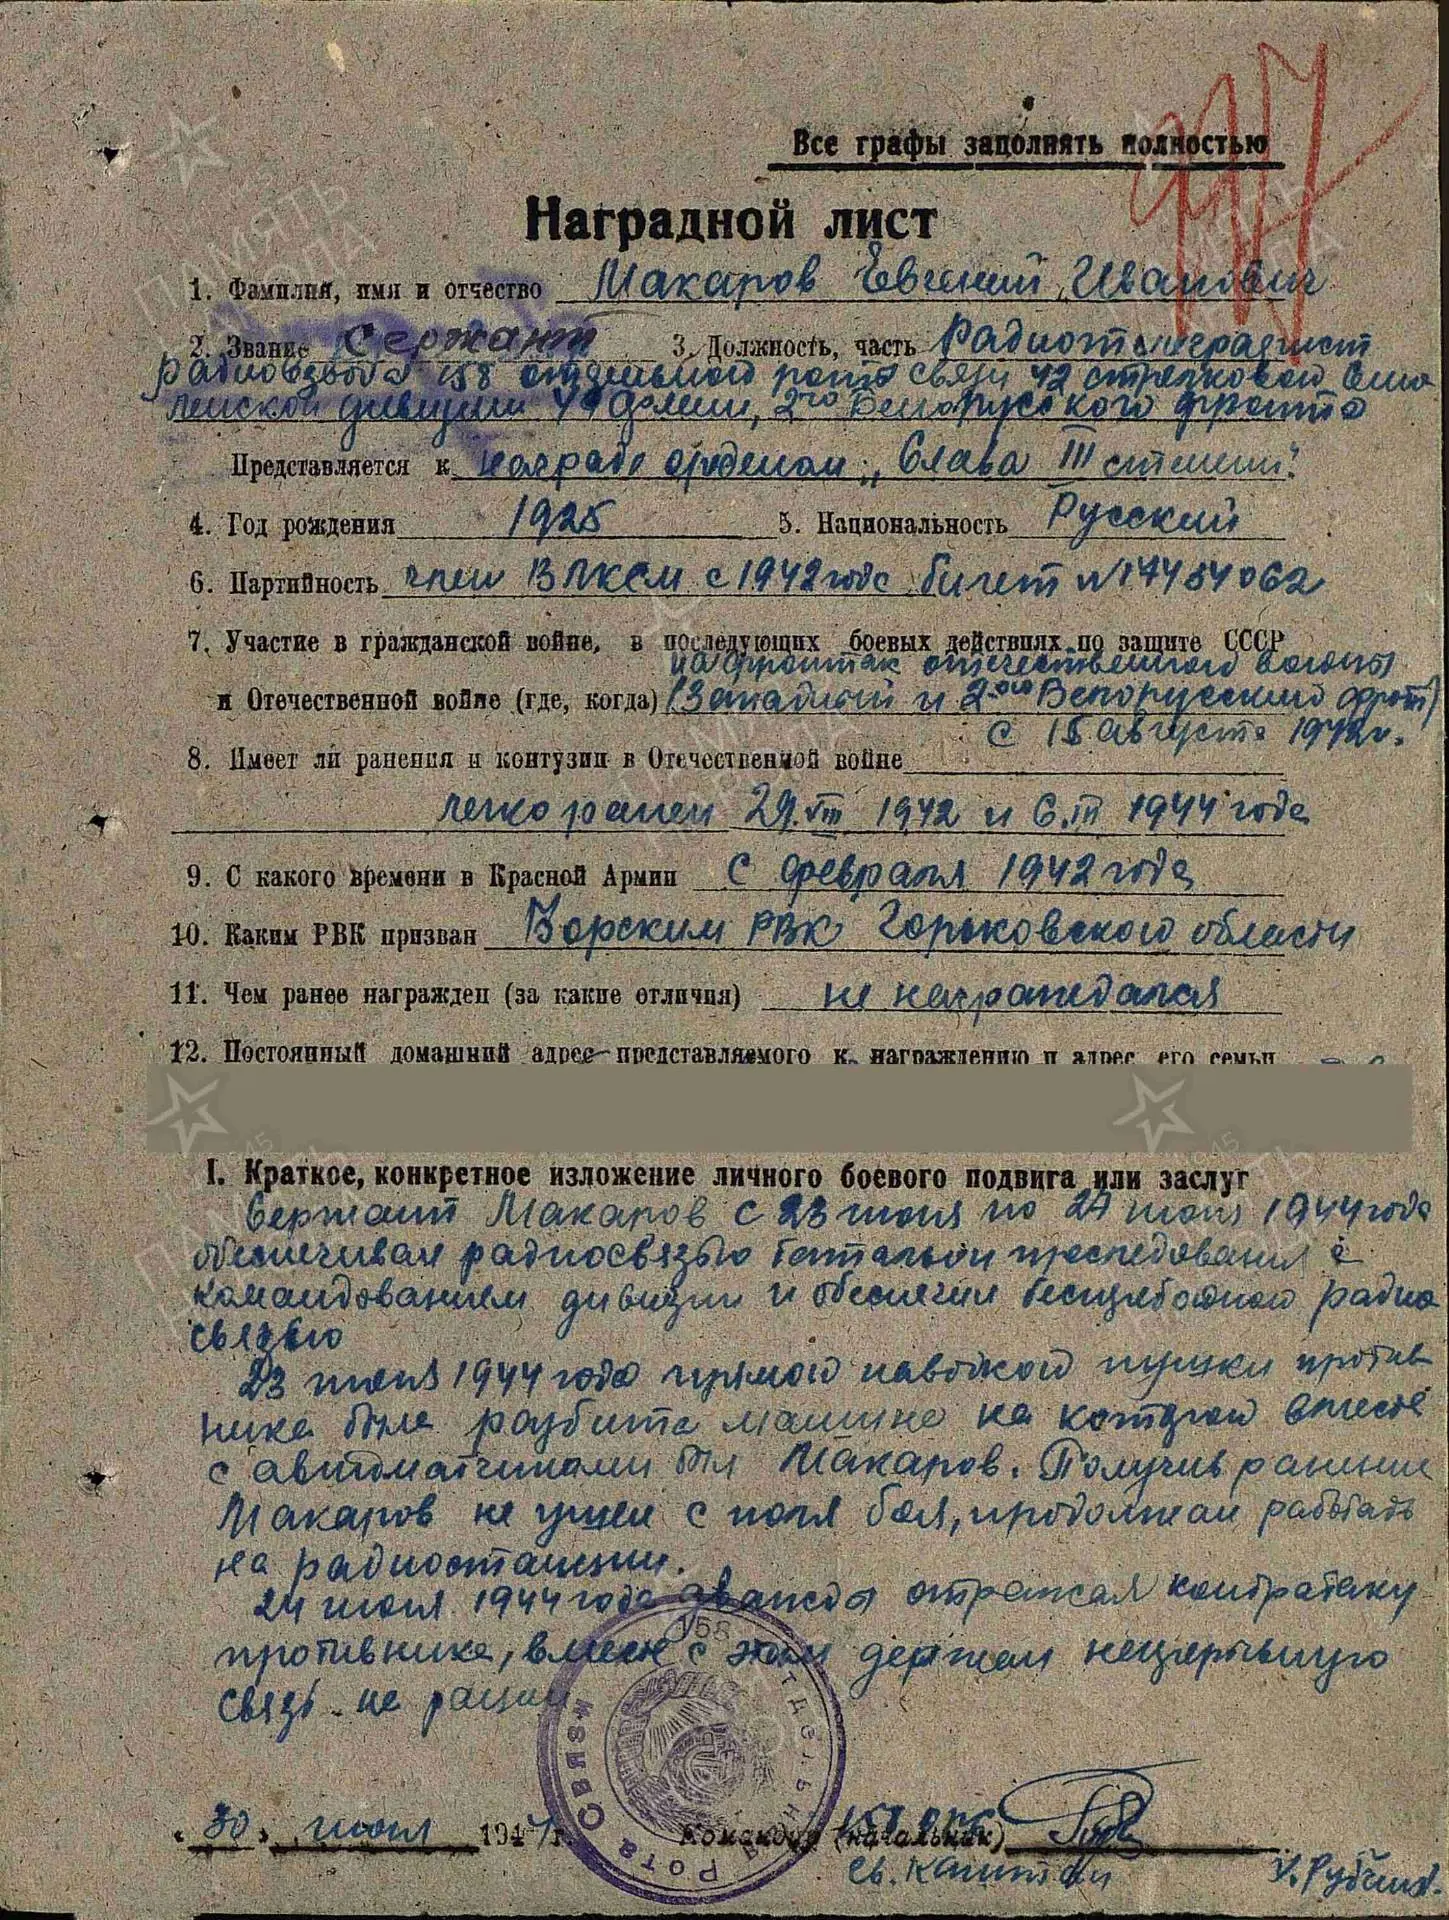 Все графы заполнять полностью
Наградной лист
1. Фамилия, имя и отчество Макаров Евгений Иванович
2. Звание Сержант 3. Должность, часть Радиотелеграфист
радиовзвода 158 отдельной роты связи 42 стрелковой Смо
ленской дивизии 49 Армии, 2го Белорусского фронта
Представляется к награде орденом „Слава III степени".
4. Год рождения 1925 5. Национальность Русский
6. Партийность член ВЛКСМ с 1942 года билет №17454062
7. Участие в гражданской войне, в последующих боевых действиях по защите СССР
на фронтах отечественной войны
и Отечественной войне (где, когда) (Западный и 2-ой Белорусский фронт)
с 15 августа 1942г.
8. Имеет ли ранения и контузии в Отечественной войне
легко ранен 29.VIII 1942 и 6.III 1944 года
9. С какого времени в Красной Армии с февраля 1942 года
10. Каким РВК призван Борским РВК Горьковской области
11. Чем ранее награжден (за какие отличия) не награждался
12. Постоянный домашний адрес представляемого к награждению и адрес его семьи
I. Краткое, конкретное изложение личного боевого подвига или заслуг
Сержант Макаров с 23 июня по 27 июня 1944 года
обеспечивал радиосвязью батальон преследования с
командованием дивизии и обеспечил бесперебойной радио
связью
23 июня 1944 года прямой наводкой пушки против
ника была разбита машина на которой вместе
с автоматчиками был Макаров. Получив ранение
Макаров не ушел с поля боя, продолжал работать
на радиостанции.
24 июня 1944 года дважды отражал контратаку
противника, вместе с этим держал непрерывную
связь на рации
158 Отдельная Рота Связи
„30" июня 1944 г. Командир (начальник) 158 ОРС
Гв. Капитан